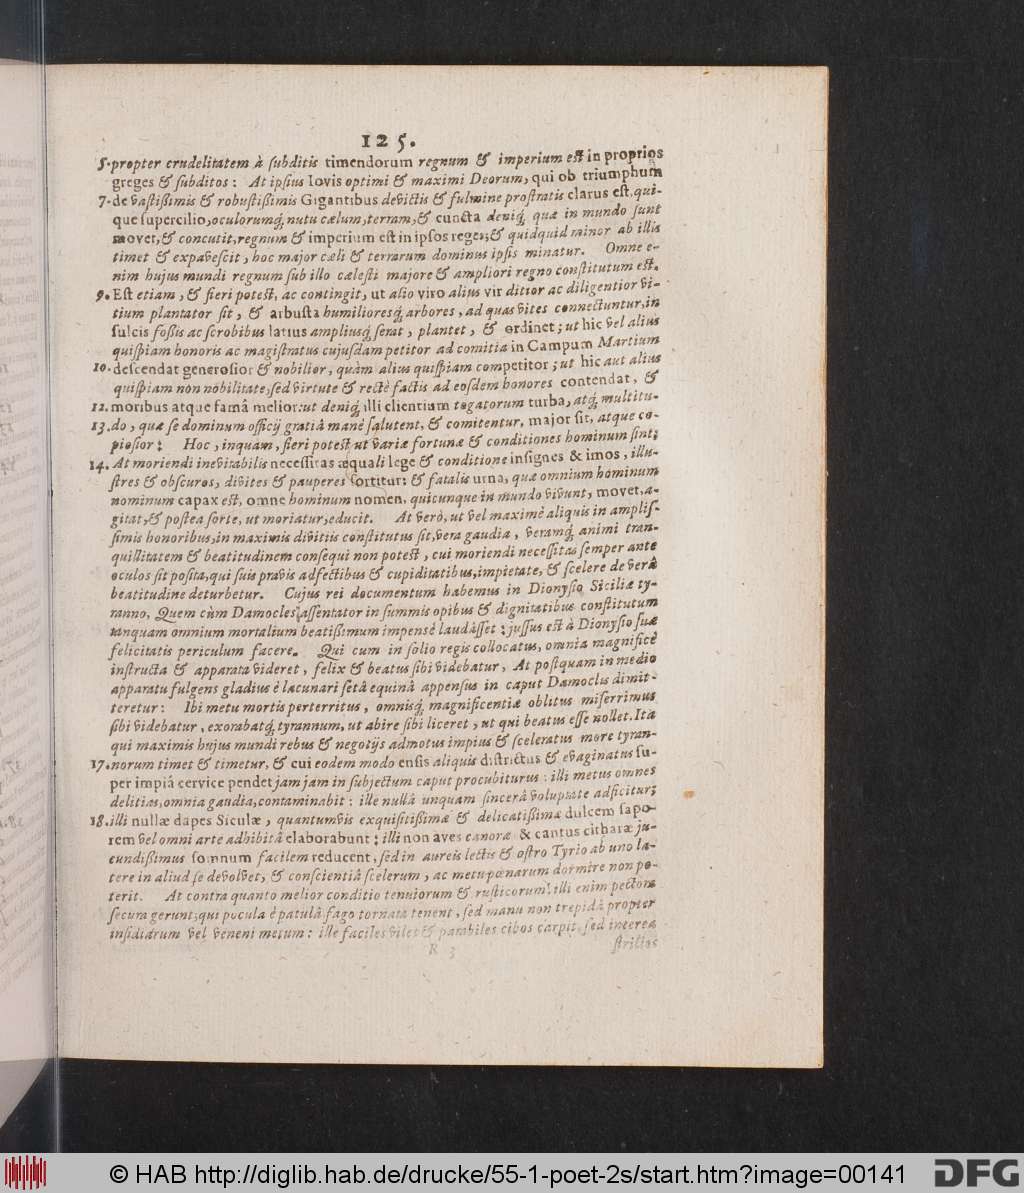 125.
5. propter crudelitatem à subditis timendorum regnum & imperium est in proprios
greges & subditos: At ipsius Iovis optimi & maximi Deorum, qui ob triumphum
7. de vastißimis & robustißimis Gigantibus devictis & fulmine prostratis clarus est, qui-
que supercilio, oculorumq́ nutu cælum, terram, & cuncta deniq́ quæ in mundo sunt
movet, & concutit, regnum & imperium est in ipsos reges; & quidquid minor ab illis
timet & expavescit, hoc major cæli & terrarum dominus ipsis minatur. Omne e-
nim hujus mundi regnum sub illo cælesti majore & ampliori regno constitutum est.
9. Est etiam, & fieri potest, ac contingit, ut alio viro alius vir ditior ac diligentior vi-
tium plantator sit, & arbusta humilioresq́ arbores, ad quas vites connectuntur, in
sulcis foßis ac scrobibus latius ampliusq́ serat, plantet, & ordinet; ut hic vel alius
quispiam honoris ac magistratus cujusdam petitor ad comitia in Campum Martium
10. descendat generosior & nobilior, quàm alius quispiam competitor; ut hic aut alius
quispiam non nobilitate, sed virtute & rectè factis ad eosdem honores contendat, &
12. moribus atque famâ melior: ut deniq́ illi clientium togatorum turba, atq́ multitu-
13. do, quæ se dominum officij gratiâ manè salutent, & comitentur, major sit, atque co-
piosior: Hoc, inquam, fieri potest ut variæ fortunæ & conditiones hominum sint;
14. At moriendi inevitabilis necessitas æquali lege & conditione insignes & imos, illu-
stres & obscuros, divites & pauperes sortitur: & fatalis urna, quæ omnium hominum
nominum capax est, omne hominum nomen, quicunque in mundo vivunt, movet, a-
gitat, & postea sorte, ut moriatur, educit. At verò, ut vel maximè aliquis in amplis-
simis honoribus, in maximis divitiis constitutus sit, vera gaudia, veramq́ animi tran-
quillitatem & beatitudinem consequi non potest, cui moriendi necessitas semper ante
oculos sit posita, qui suis pravis adfectibus & cupiditatibus, impietate, & scelere de verâ
beatitudine deturbetur. Cujus rei documentum habemus in Dionysio Siciliæ ty-
ranno, Quem cùm Damocles assentator in summis opibus & dignitatibus constitutum
tanquam omnium mortalium beatißimum impensè laudâsset: jussus est à Dionysio suæ
felicitatis periculum facere. Qui cum in solio regis collocatus, omnia magnificè
instructa & apparata videret, felix & beatus sibi videbatur, At postquam in medio
apparatu fulgens gladius è lacunari setâ equinâ appensus in caput Damoclis dimit-
teretur: Ibi metu mortis perterritus, omnisq́ magnificentiæ oblitus miserrimus
sibi videbatur, exorabatq́ tyrannum, ut abire sibi liceret, ut qui beatus esse nollet. Ita
qui maximis hujus mundi rebus & negotijs admotus impius & sceleratus more tyran-
17. norum timet & timetur, & cui eodem modo ensis aliquis districtus & evaginatus su-
per impiâ cervice pendet jam jam in subjectum caput procubiturus: illi metus omnes
delitias, omnia gaudia, contaminabit: ille nullâ unquam sincerâ voluptate adficitur;
18. illi nullæ dapes Siculæ, quantumvis exquisitißimæ & delicatißimæ dulcem sapo-
rem vel omni arte adhibitâ elaborabunt: illi non aves canoræ & cantus citharæ ju-
cundißimus somnum facilem reducent, sed in aureis lectis & ostro Tyrio ab uno la-
tere in aliud se devolvet, & conscientiâ scelerum, ac metu pœnarum dormire non po-
terit. At contra quanto melior conditio tenuiorum & rusticorum! illi enim pectora
secura gerunt; qui pocula è patulâ fago tornata tenent, sed manu non trepidâ propter
insidiarum vel veneni metum: ille faciles viles & parabiles cibos carpit, sed interea
R 3
strictos
© HAB http://diglib.hab.de/drucke/55-1-poet-2s/start.htm?image=00141
DFG